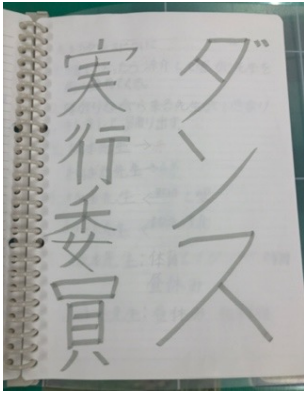 ダンス
実行委員